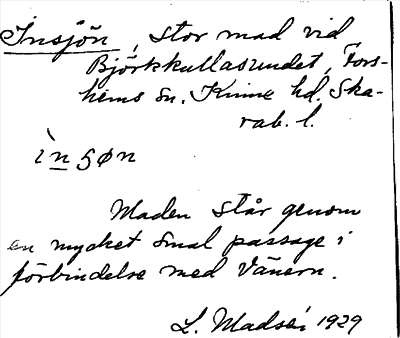 Insjön, stor mad vid
Björkkullasundet, Fors-
hems sn. Kinne hd. Ska-
rab. l.
ìnꞩøn
Maden står genom
en mycket smal passage i
förbindelse med Vänern.
L. Madsén 1929